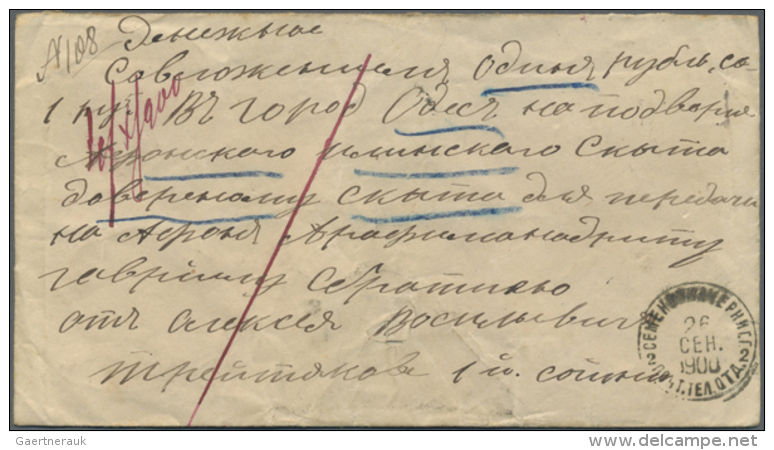 N108
Денежное
Совложениемя Одиня рубль, са
1 руб Въ город Одеса на подворие
Афонского илинского Скыта
довереному скыта для передачи
на Афоня Архимандриту
гаврилу с братиею
отъ Алексея Восильевич
Третякова 1й. сотни
26
СЕН.
1900
Gaertnerauk
delcampe.net